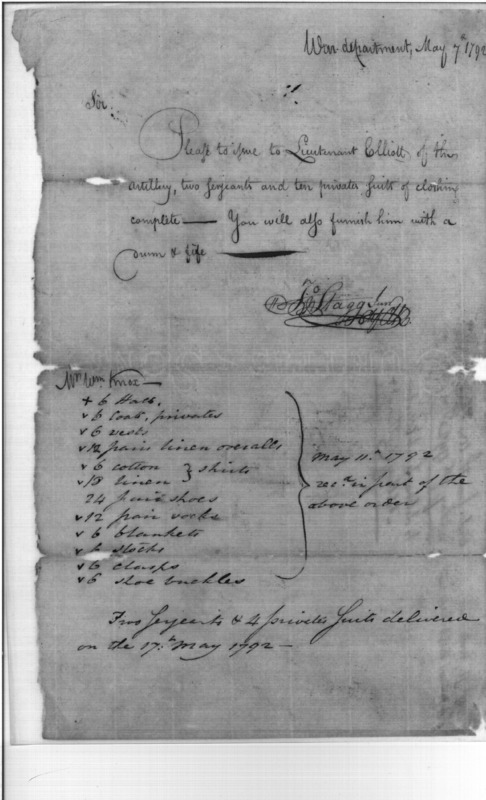 War department, May 7th 1792
Sir,
Please to issue to Lieutenant Elliott of the
artillery, two sergeants and ten privates suits of clothing
complete — You will also furnish him with a
drum & fife
Jno Stagg Junr
Mr. Wm. Knox —
+ 6 Hats,
v 6 Coats, privates
v 6 vests
v 12 pairs linen overalls
v 6 cotton } shirts
v 18 linen
24 pair shoes
v 12 pair socks
v 6 blankets
v 6 stocks
v 6 clasps
v 6 shoe buckles
May 11th 1792
recd. in part of the
above order
Two Sergeants & 4 privates suits delivered
on the 17th May 1792 —